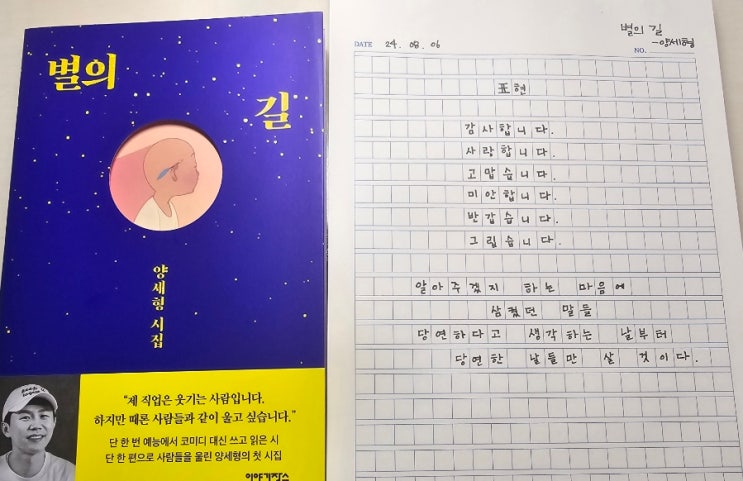 별의
길
양세형 시집
“제 직업은 웃기는 사람입니다.
하지만 때론 사람들과 같이 울고 싶습니다.”
단 한 번 예능에서 코미디 대신 쓰고 읽은 시
단 한 편으로 사람들을 울린 양세형의 첫 시집
이야기장수
별의 길
-양세형
DATE 24. 08. 06
NO.
표현
감사합니다.
사랑합니다.
고맙습니다.
미안합니다.
반갑습니다.
그립습니다.
알아주겠지 하는 마음에
삼켰던 말들
당연하다고 생각하는 날부터
당연한 날들만 살 것이다.